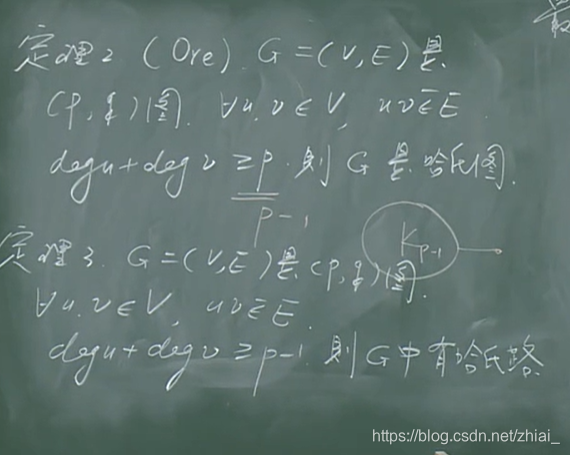 定理2 (Ore). G=(V,E)是
(p,q)图. ∀u.v∈V, uv∈̄E
degu+degv≥p. 则G是哈氏图.
p-1
K_{p-1}
定理3. G=(V,E)是(p,q)图.
∀u.v∈V, uv∈̄E.
degu+degv≥p-1. 则G中有哈氏路
https://blog.csdn.net/zhiai_